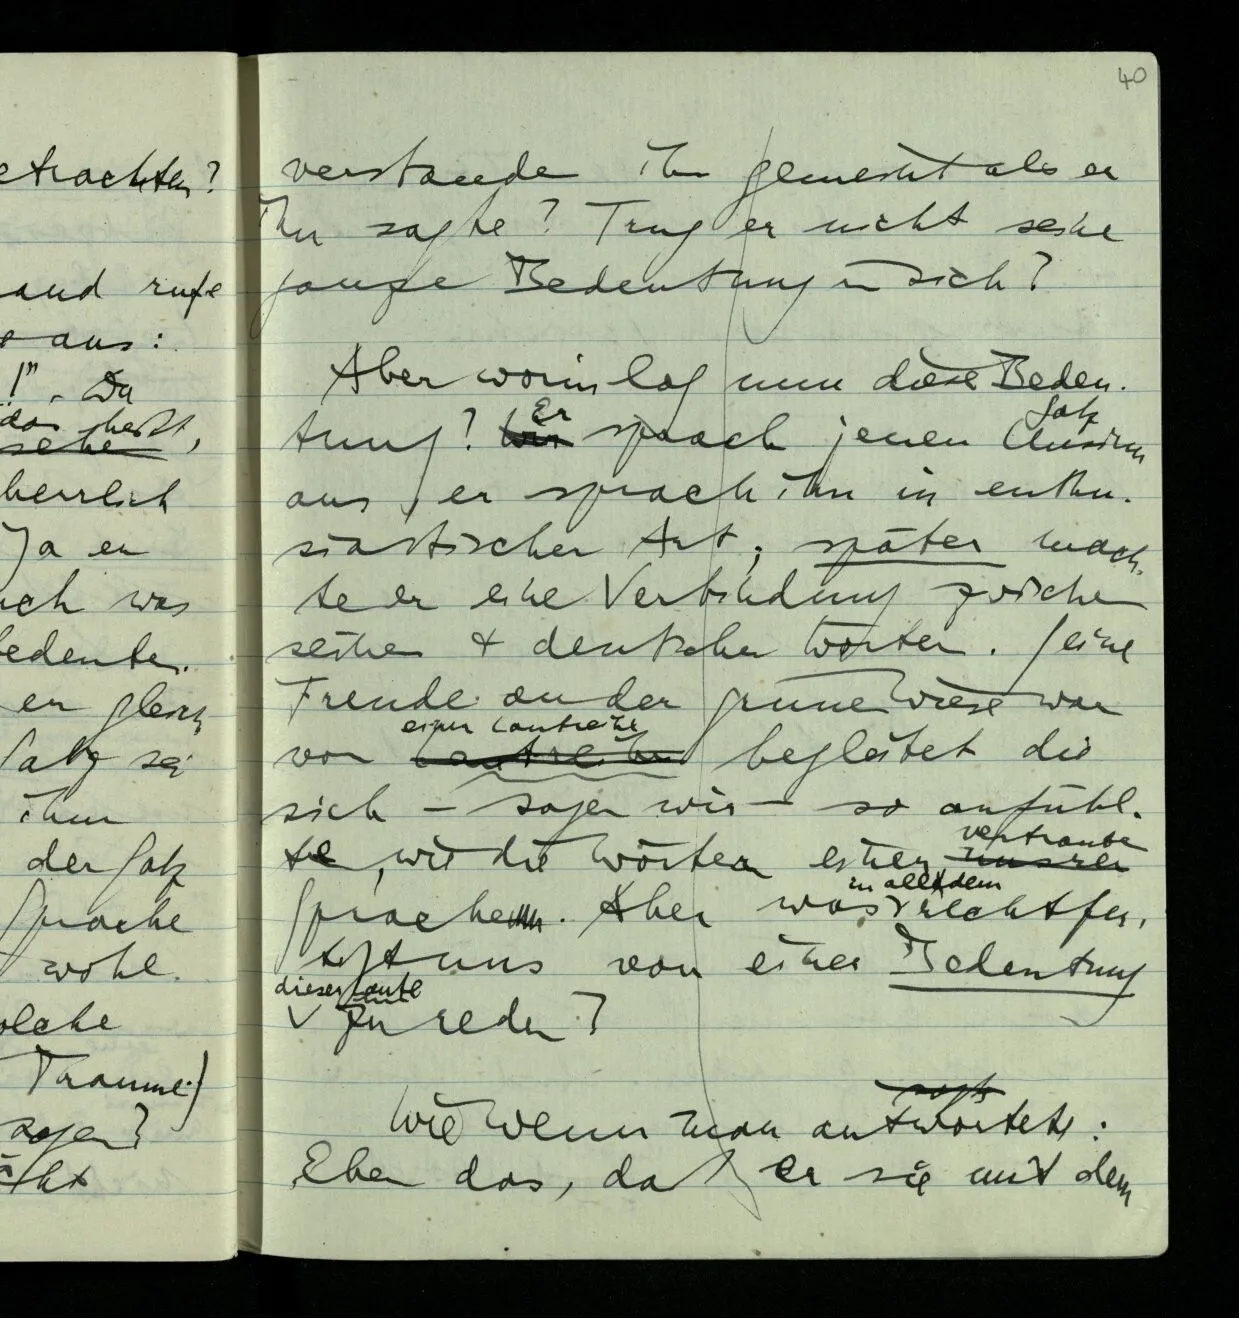 40
etrachten?
and rufe
aus:
!" - Du
das heißt,
sehe
herrlich
Ja er
uch was
bedeute.
er gleich
Satz sei
ihm
der Satz
Sprache
wohl
olche
Traume.)
sagen?
icht
verstande ihn gemeint als er
ihn sagte? Trug er nicht seine
ganze Bedeutung in sich?
Aber worin lag nun diese Bedeu-
Er Satz
tung? Wir sprach jenen Unsinn
aus, er sprach ihn in enthu-
siastischer Art; später mach-
te er eine Verbindung zwischen
seinen & deutschen Worten. Seine
Freude an der grünen Wiese war
einer Lautreihe
von Lautreihen begleitet die
sich – sagen wir – so anfühl-
vertrauten
te, wie die Worte einer unsrer
in alldem
Sprache. Aber was rechtfer-
tigt uns von einer Bedeutung
dieser Laute
zu reden?
sagte
Wie wenn man antwortete:
Eben das, daß er sie mit dem